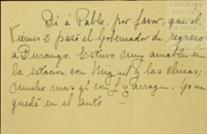 Di á Pablo, por favor, que el
Viernes 2 pasó el Gobernador de regreso
a Durango. Estuvo muy amable en
la estación con Miguel y las chicas;
mucho mas qe con Yo me
quedé en el auto.